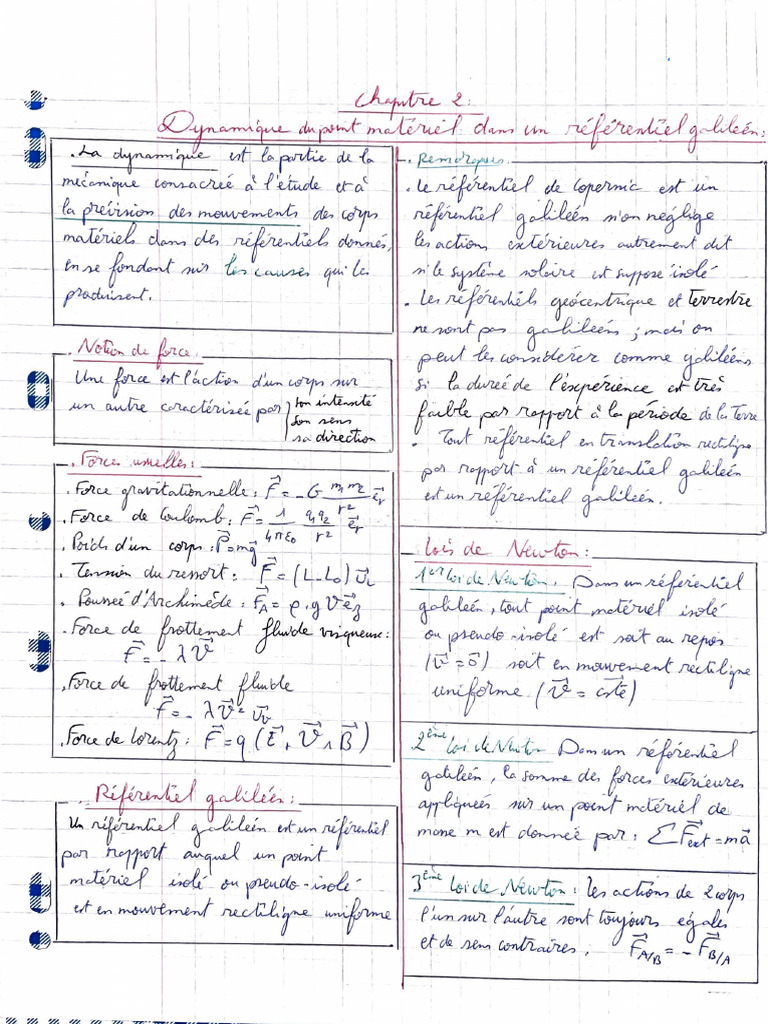 Chapitre 2:
Dynamique du point matériel dans un référentiel galiléen:
. La dynamique est la partie de la
mécanique consacrée à l'étude et à
la prévision des mouvements des corps
matériels dans des référentiels donnés,
en se fondant sur les causes qui les
produisent.
. Notion de force.
Une force est l'action d'un corps sur
un autre caractérisée par
son intensité
son sens
sa direction
. Forces usuelles:
. Force gravitationnelle: F⃗ = -G m₁m₂/r² e⃗r
. Force de Coulomb: F⃗ = 1/4πε₀ q₁q₂/r² e⃗r
. Poids d'un corps: P⃗ = mg⃗
. Tension du ressort: F⃗ = (L-L₀) u⃗
. Poussée d'Archimède: F⃗A = ρ.g V e⃗z
. Force de frottement fluide visqueuse:
F⃗ = - λ V⃗
. Force de frottement fluide
F⃗ = - λ V⃗² u⃗v
. Force de Lorentz: F⃗ = q (E⃗ + V⃗ ∧ B⃗)
. Référentiel galiléen:
Un référentiel galiléen est un référentiel
par rapport auquel un point
matériel isolé ou pseudo-isolé
est en mouvement rectiligne uniforme
. Remarques.
. Le référentiel de Copernic est un
référentiel galiléen si on néglige
les actions extérieures autrement dit
si le système solaire est supposé isolé
. Les référentiels géocentrique et terrestre
ne sont pas galiléens; mais on
peut les considérer comme galiléens
si la durée de l'expérience est très
faible par rapport à la période de la Terre
. Tout référentiel en translation rectiligne
par rapport à un référentiel galiléen
est un référentiel galiléen.
. Lois de Newton:
1er loi de Newton. Dans un référentiel
galiléen, tout point matériel isolé
ou pseudo-isolé est soit au repos
(v⃗ = o⃗) soit en mouvement rectiligne
uniforme. (v⃗ = cste)
2ème loi de Newton Dans un référentiel
galiléen, la somme des forces extérieures
appliquées sur un point matériel de
masse m est donnée par: ΣF⃗ext = ma⃗
3ème Loi de Newton: les actions de 2 corps
l'un sur l'autre sont toujours égales
et de sens contraires. F⃗A/B = - F⃗B/A